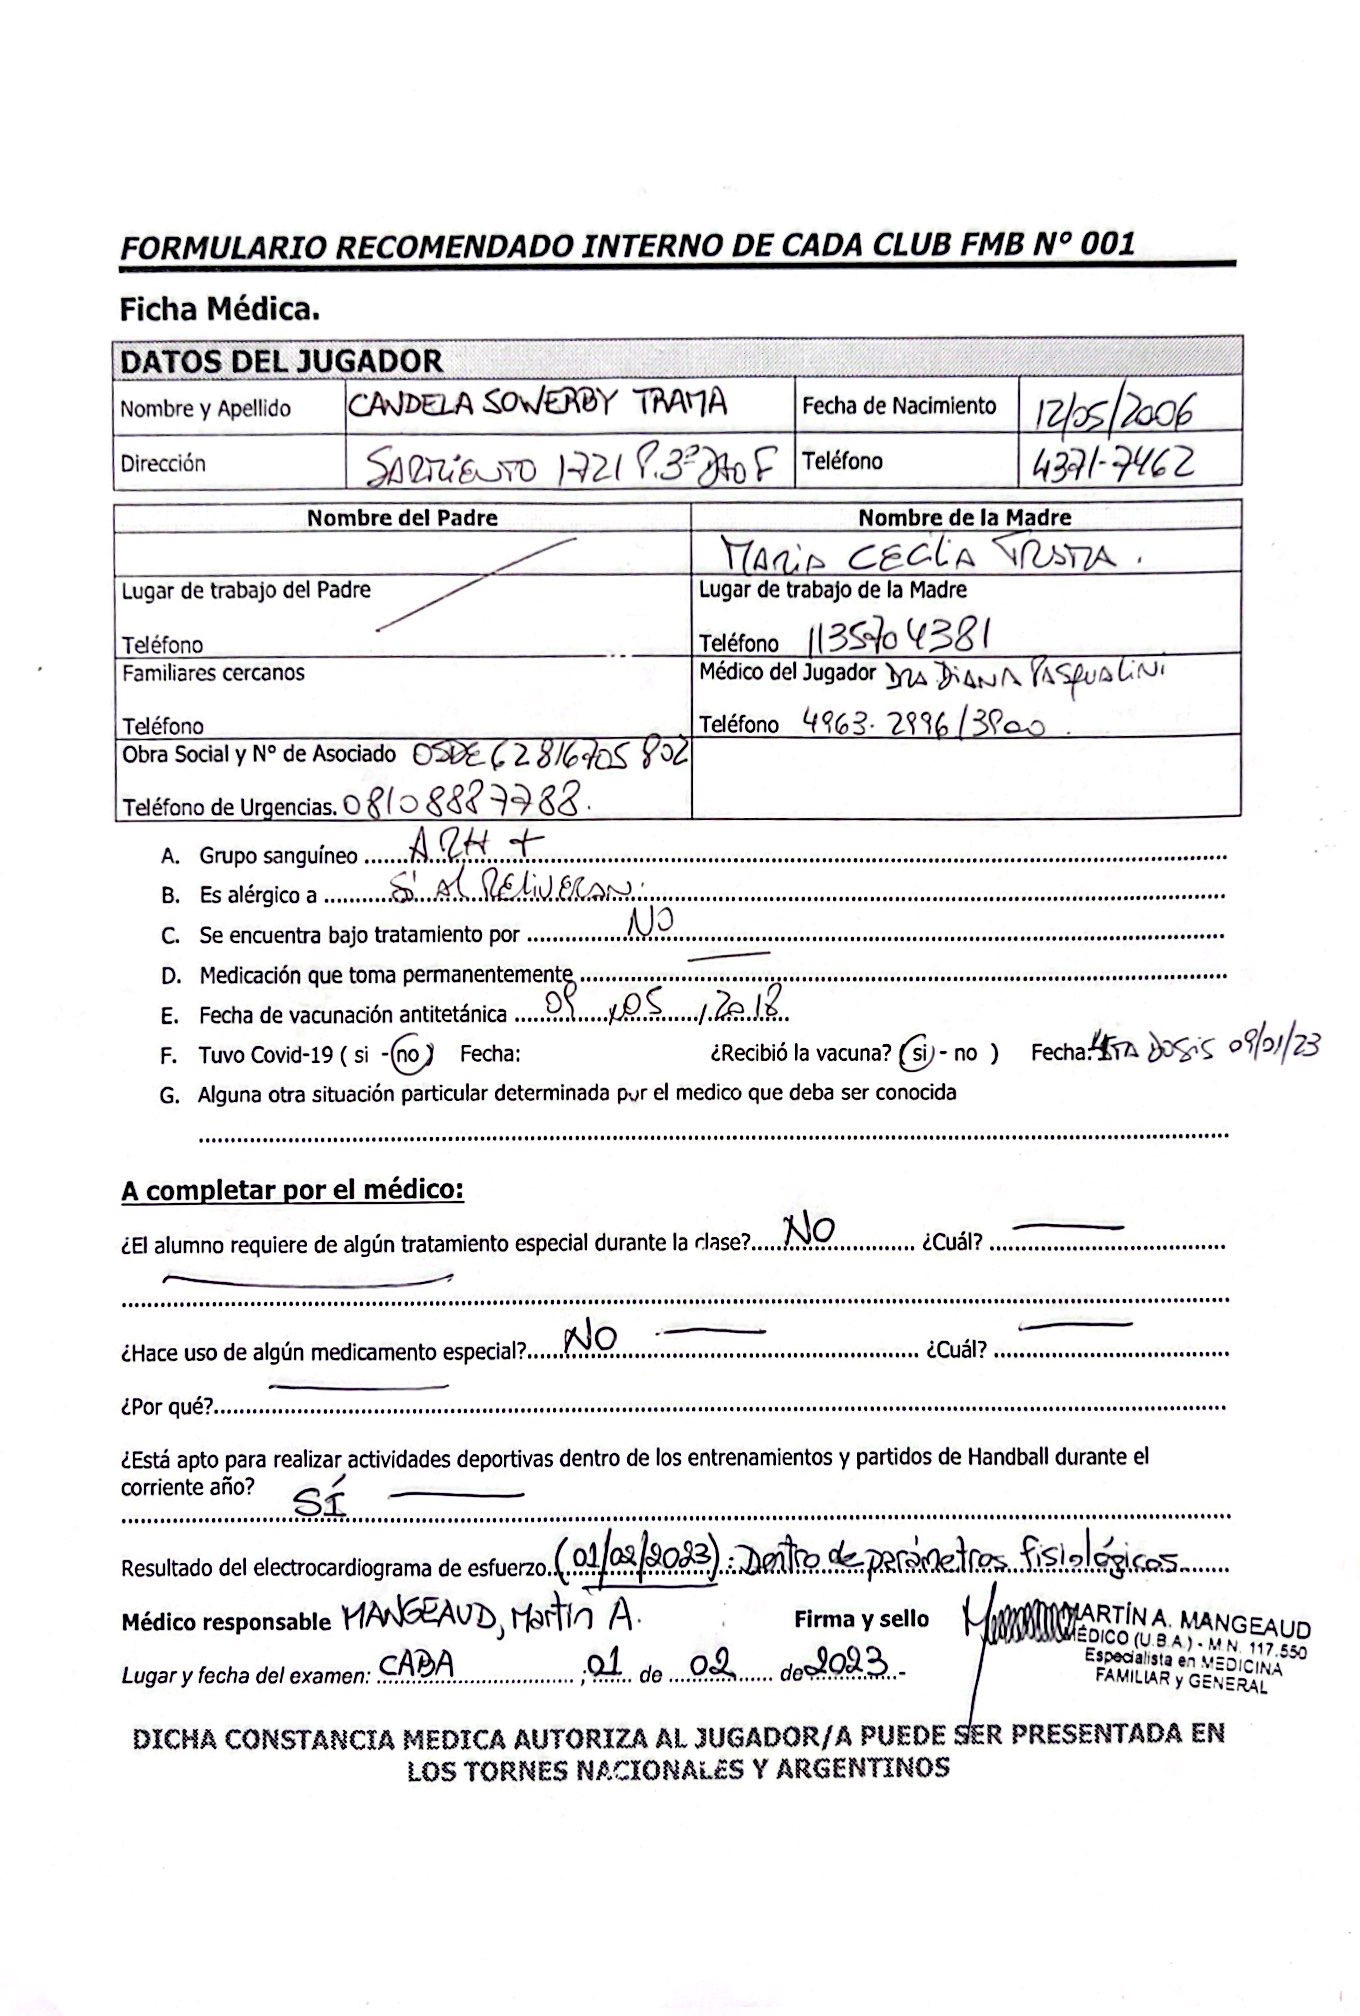 FORMULARIO RECOMENDADO INTERNO DE CADA CLUB FMB Nº 001
Ficha Médica.
DATOS DEL JUGADOR
Nombre y Apellido CANDELA SOWERBY TRAMA Fecha de Nacimiento 12/05/2006
Dirección SARMIENTO 1721 P.3º Dto F Teléfono 4371-7462
Nombre del Padre Nombre de la Madre
MARIA CECILIA TRAMA.
Lugar de trabajo del Padre Lugar de trabajo de la Madre
Teléfono Teléfono 1135704381
Familiares cercanos Médico del Jugador DRA DIANA PASQUALINI
Teléfono Teléfono 4963-2996/3900.
Obra Social y N° de Asociado OSDE 62816705 802
Teléfono de Urgencias. 08108887788.
A. Grupo sanguíneo ...... A RH +
B. Es alérgico a ...... SÍ AL RELIVERAN.
C. Se encuentra bajo tratamiento por ...... NO
D. Medicación que toma permanentemente ...... —
E. Fecha de vacunación antitetánica ...... 09 / 05 / 2018
F. Tuvo Covid-19 ( si - no ) Fecha: ¿Recibió la vacuna? ( si - no ) Fecha: 4TA DOSIS 09/01/23
G. Alguna otra situación particular determinada por el medico que deba ser conocida
A completar por el médico:
¿El alumno requiere de algún tratamiento especial durante la clase? NO ¿Cuál? —
¿Hace uso de algún medicamento especial? NO — ¿Cuál? —
¿Por qué? —
¿Está apto para realizar actividades deportivas dentro de los entrenamientos y partidos de Handball durante el
corriente año? SÍ —
Resultado del electrocardiograma de esfuerzo. (01/02/2023): Dentro de parámetros fisiológicos
Médico responsable MANGEAUD, Martín A. Firma y sello MARTÍN A. MANGEAUD
MÉDICO (U.B.A.) - M.N. 117.550
Especialista en MEDICINA
FAMILIAR y GENERAL
Lugar y fecha del examen: CABA ; 01 de 02 de 2023 -
DICHA CONSTANCIA MEDICA AUTORIZA AL JUGADOR/A PUEDE SER PRESENTADA EN
LOS TORNES NACIONALES Y ARGENTINOS